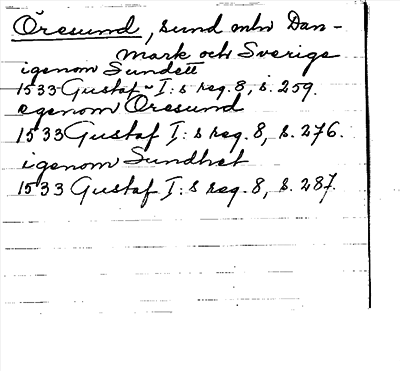 Öresund, sund mln Dan-
mark och Sverige
igenom Sundett
1533 Gustaf I:s reg. 8, s. 259.
egenom Öresund
1533 Gustaf I:s reg. 8, s. 276.
igenom Sundhet
1533 Gustaf I:s reg. 8, s. 287.